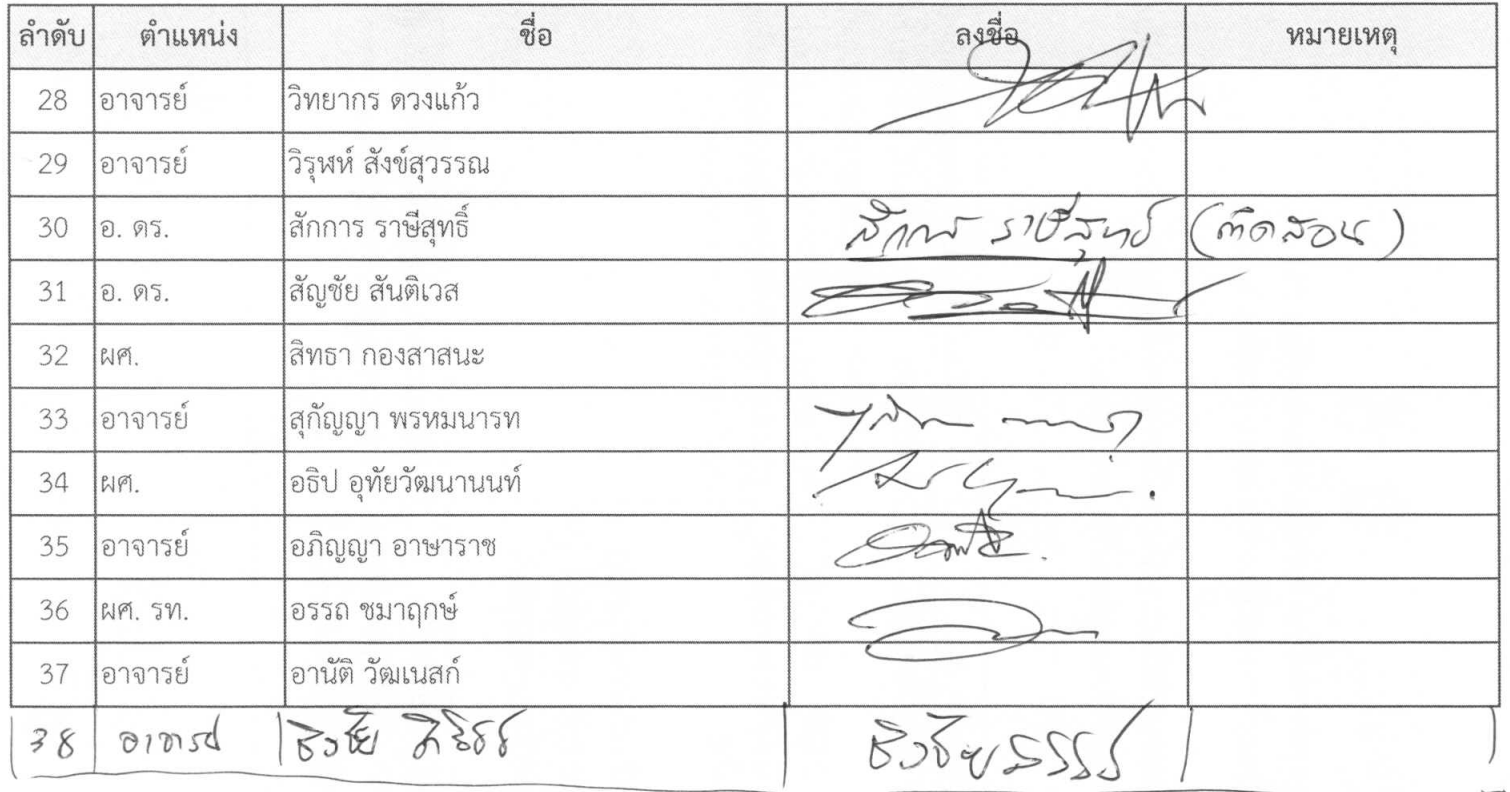 ลำดับ ตำแหน่ง ชื่อ ลงชื่อ หมายเหตุ
28 อาจารย์ วิทยากร ดวงแก้ว
29 อาจารย์ วิรุฬห์ สังข์สุวรรณ
30 อ. ดร. สักการ ราษีสุทธิ์ สักการ ราษีสุทธิ์ (ติดสอน)
31 อ. ดร. สัญชัย สันติเวส
32 ผศ. สิทธา กองสาสนะ
33 อาจารย์ สุกัญญา พรหมนารท
34 ผศ. อธิป อุทัยวัฒนานนท์
35 อาจารย์ อภิญญา อาษาราช
36 ผศ. รท. อรรถ ชมาฤกษ์
37 อาจารย์ อานัติ วัฒเนสก์
38 อาจารย์